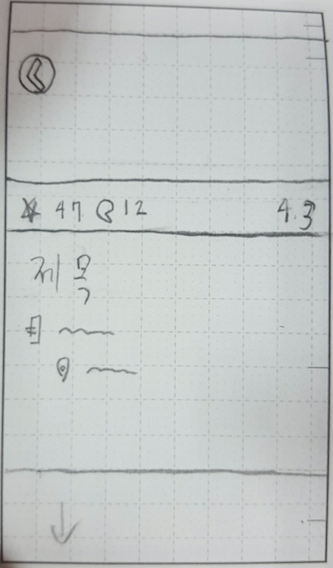 47 12 4.3
제목